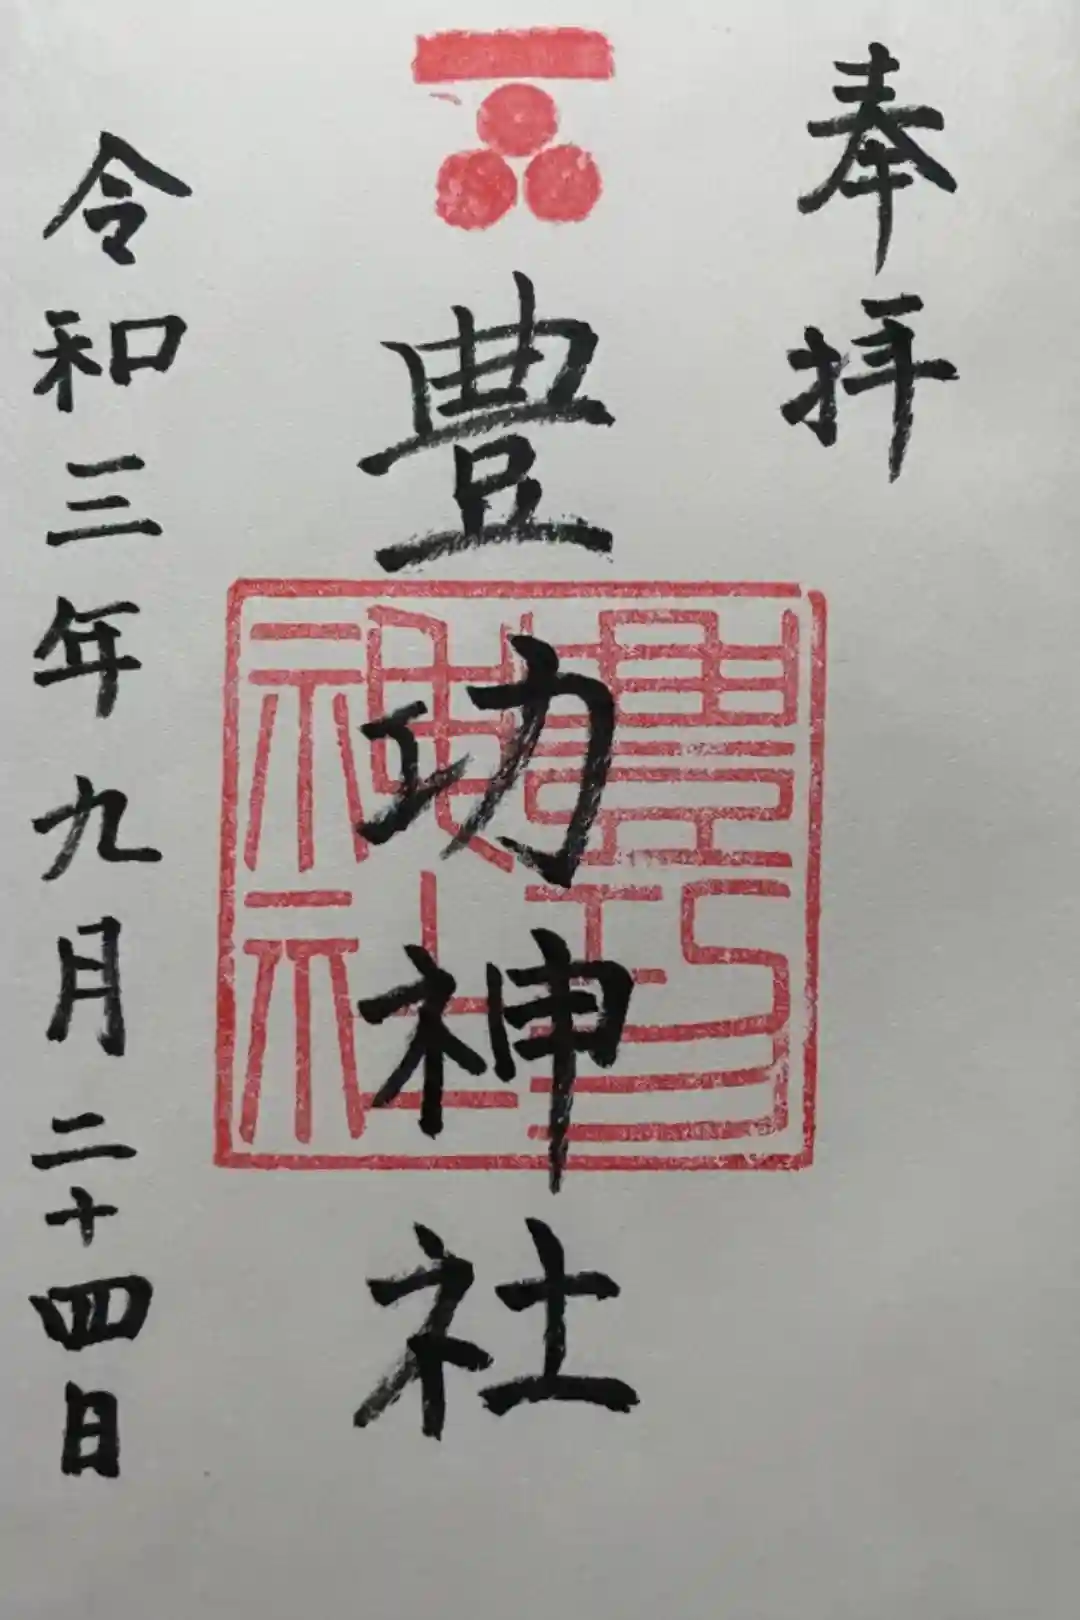 奉拝
豊功神社
豊功神社
令和三年九月二十四日